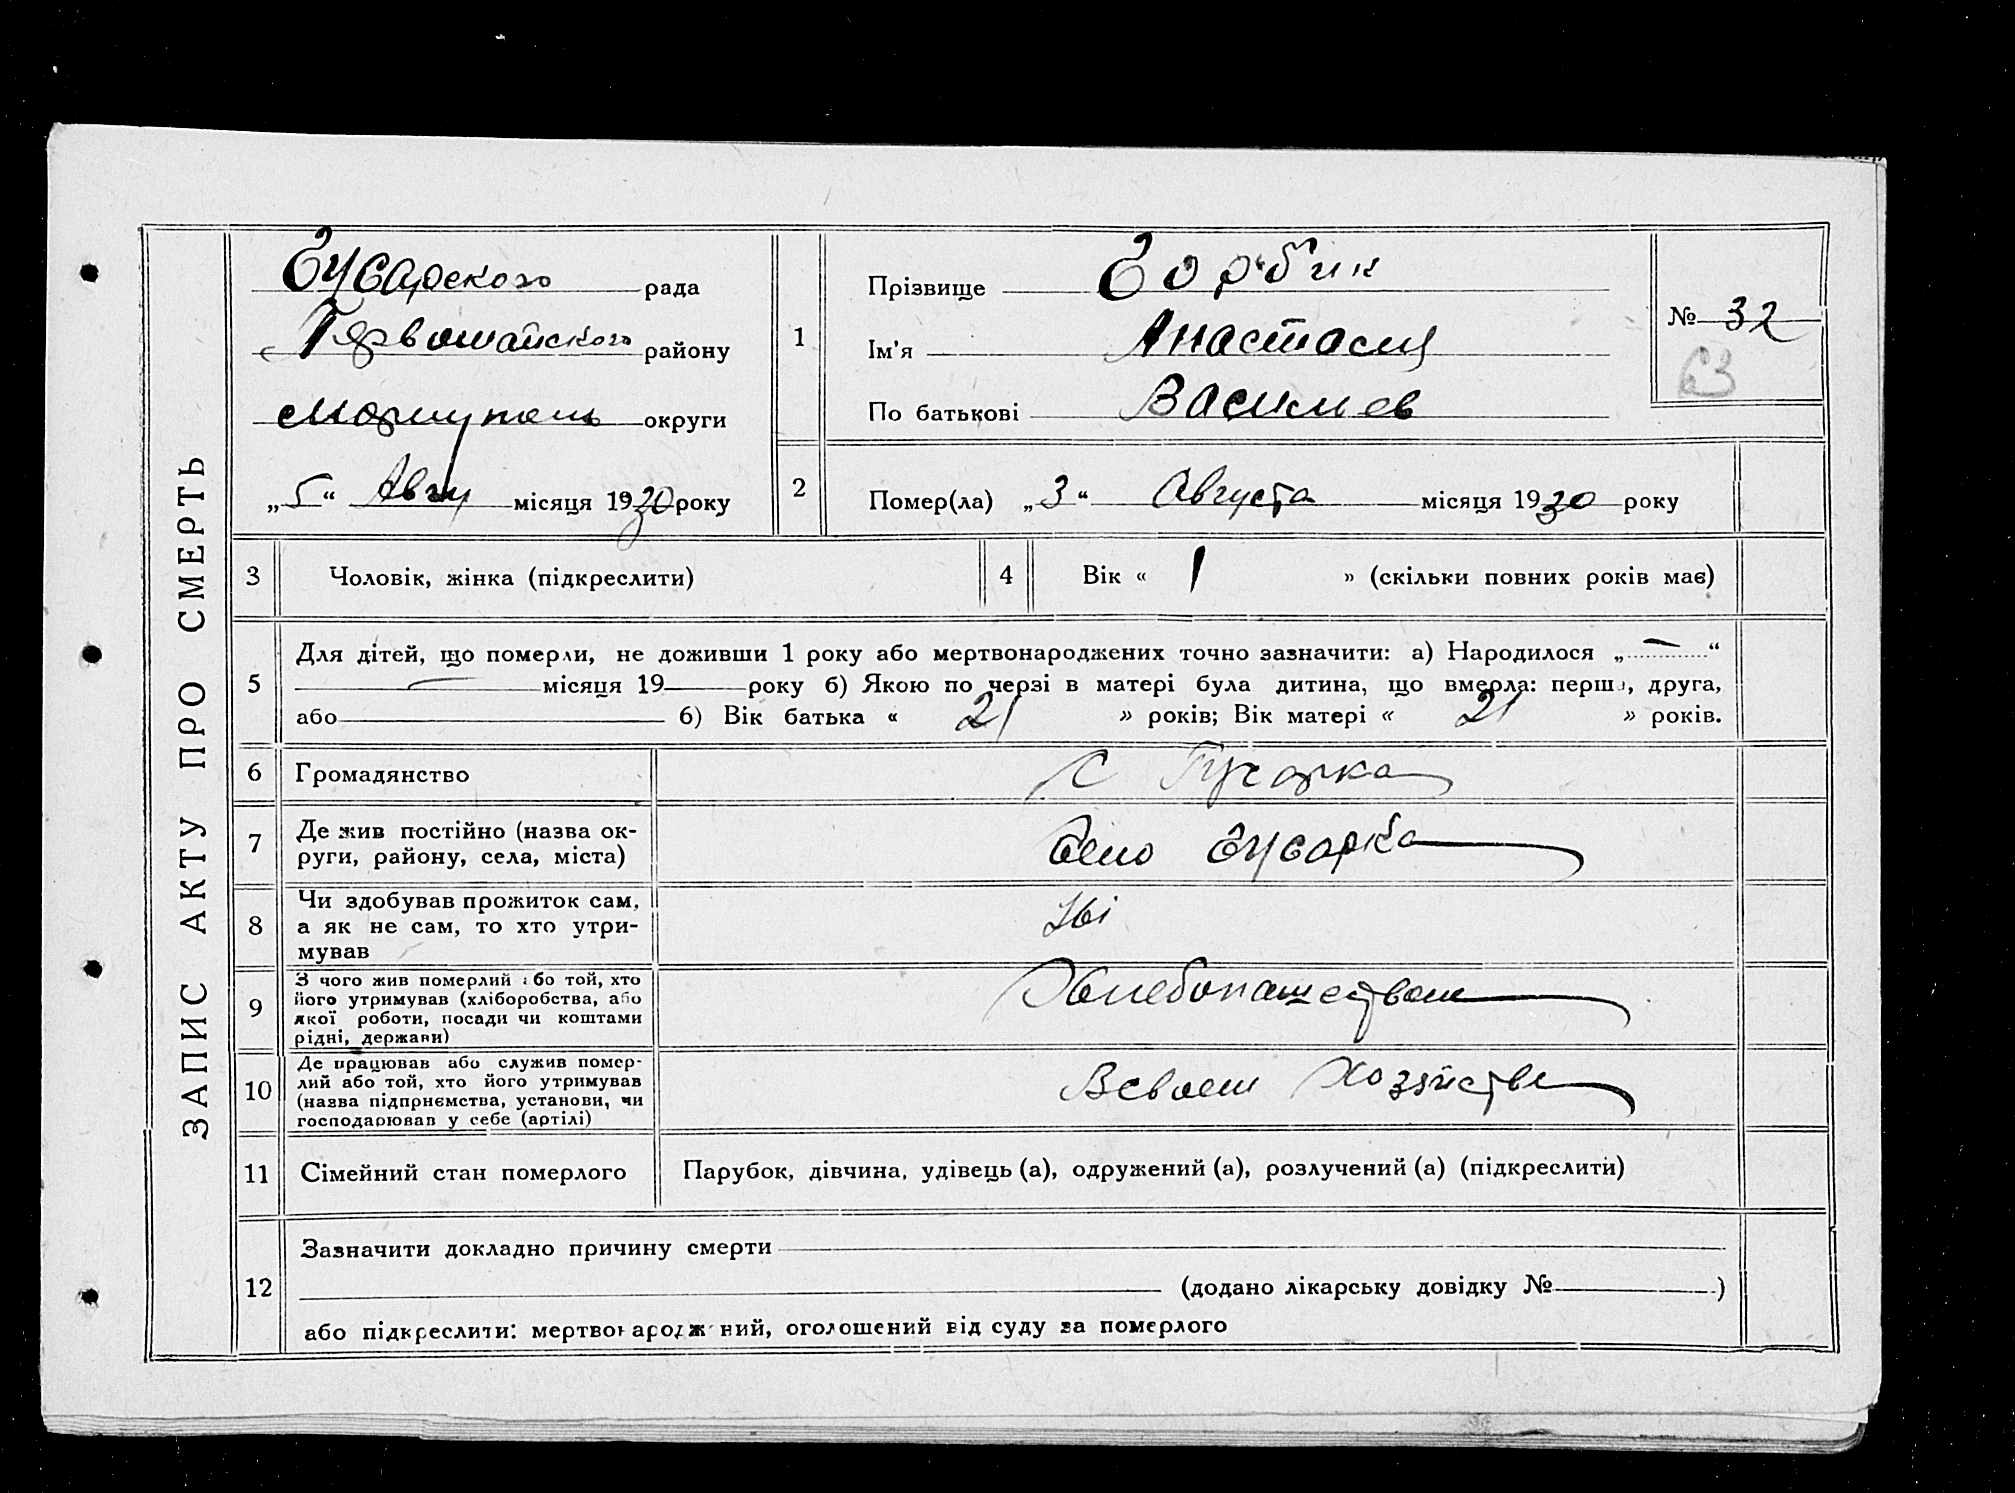 ЗАПИС АКТУ ПРО СМЕРТЬ
Гусарского рада
Первомайского району
Мариупољ округи
„5“ Авгу місяця 1930 року
1
Прізвище Горбик
Ім'я Анастасия
По батькові Василиев
№ 32
63
2
Помер(ла) „3“ Августа місяця 1930 року
3 Чоловік, жінка (підкреслити)
4 Вік « 1 » (скільки повних років має)
5
Для дітей, що померли, не доживши 1 року або мертвонароджених точно зазначити: а) Народилося „—“
місяця 19 року б) Якою по черзі в матері була дитина, що вмерла: перша, друга,
або б) Вік батька « 21 » років; Вік матері « 21 » років.
6 Громадянство с Гусарка
7
Де жив постійно (назва ок-
руги, району, села, міста)
Село Гусарка
8
Чи здобував прожиток сам,
а як не сам, то хто утри-
мував
9
З чого жив померлий або той, хто
його утримував (хліборобства, або
якої роботи, посади чи коштами
рідні, держави)
Хлебопашеством
10
Де працював або служив помер-
лий або той, хто його утримував
(назва підприємства, установи, чи
господарював у себе (артілі)
Всвоем Хозяйстве
11 Сімейний стан померлого Парубок, дівчина, удівець (а), одружений (а), розлучений (а) (підкреслити)
12
Зазначити докладно причину смерти
(додано лікарську довідку № )
або підкреслити: мертвонароджений, оголошений від суду за померлого